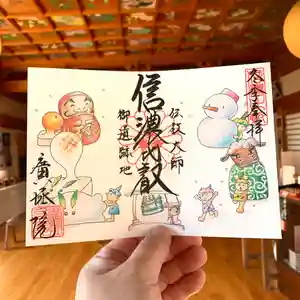 冬季奉拝
伝教大師
信濃比叡
御遺跡地
廣拯院